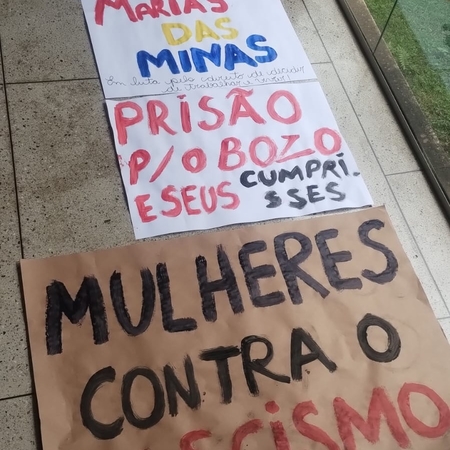 MARIAS
DAS
MINAS
Em luta pelo direito de decidir
de trabalhar e viver!
PRISÃO
P/O BOZO
E SEUS CUMPRI-
SSES
MULHERES
CONTRA O
SCISMO